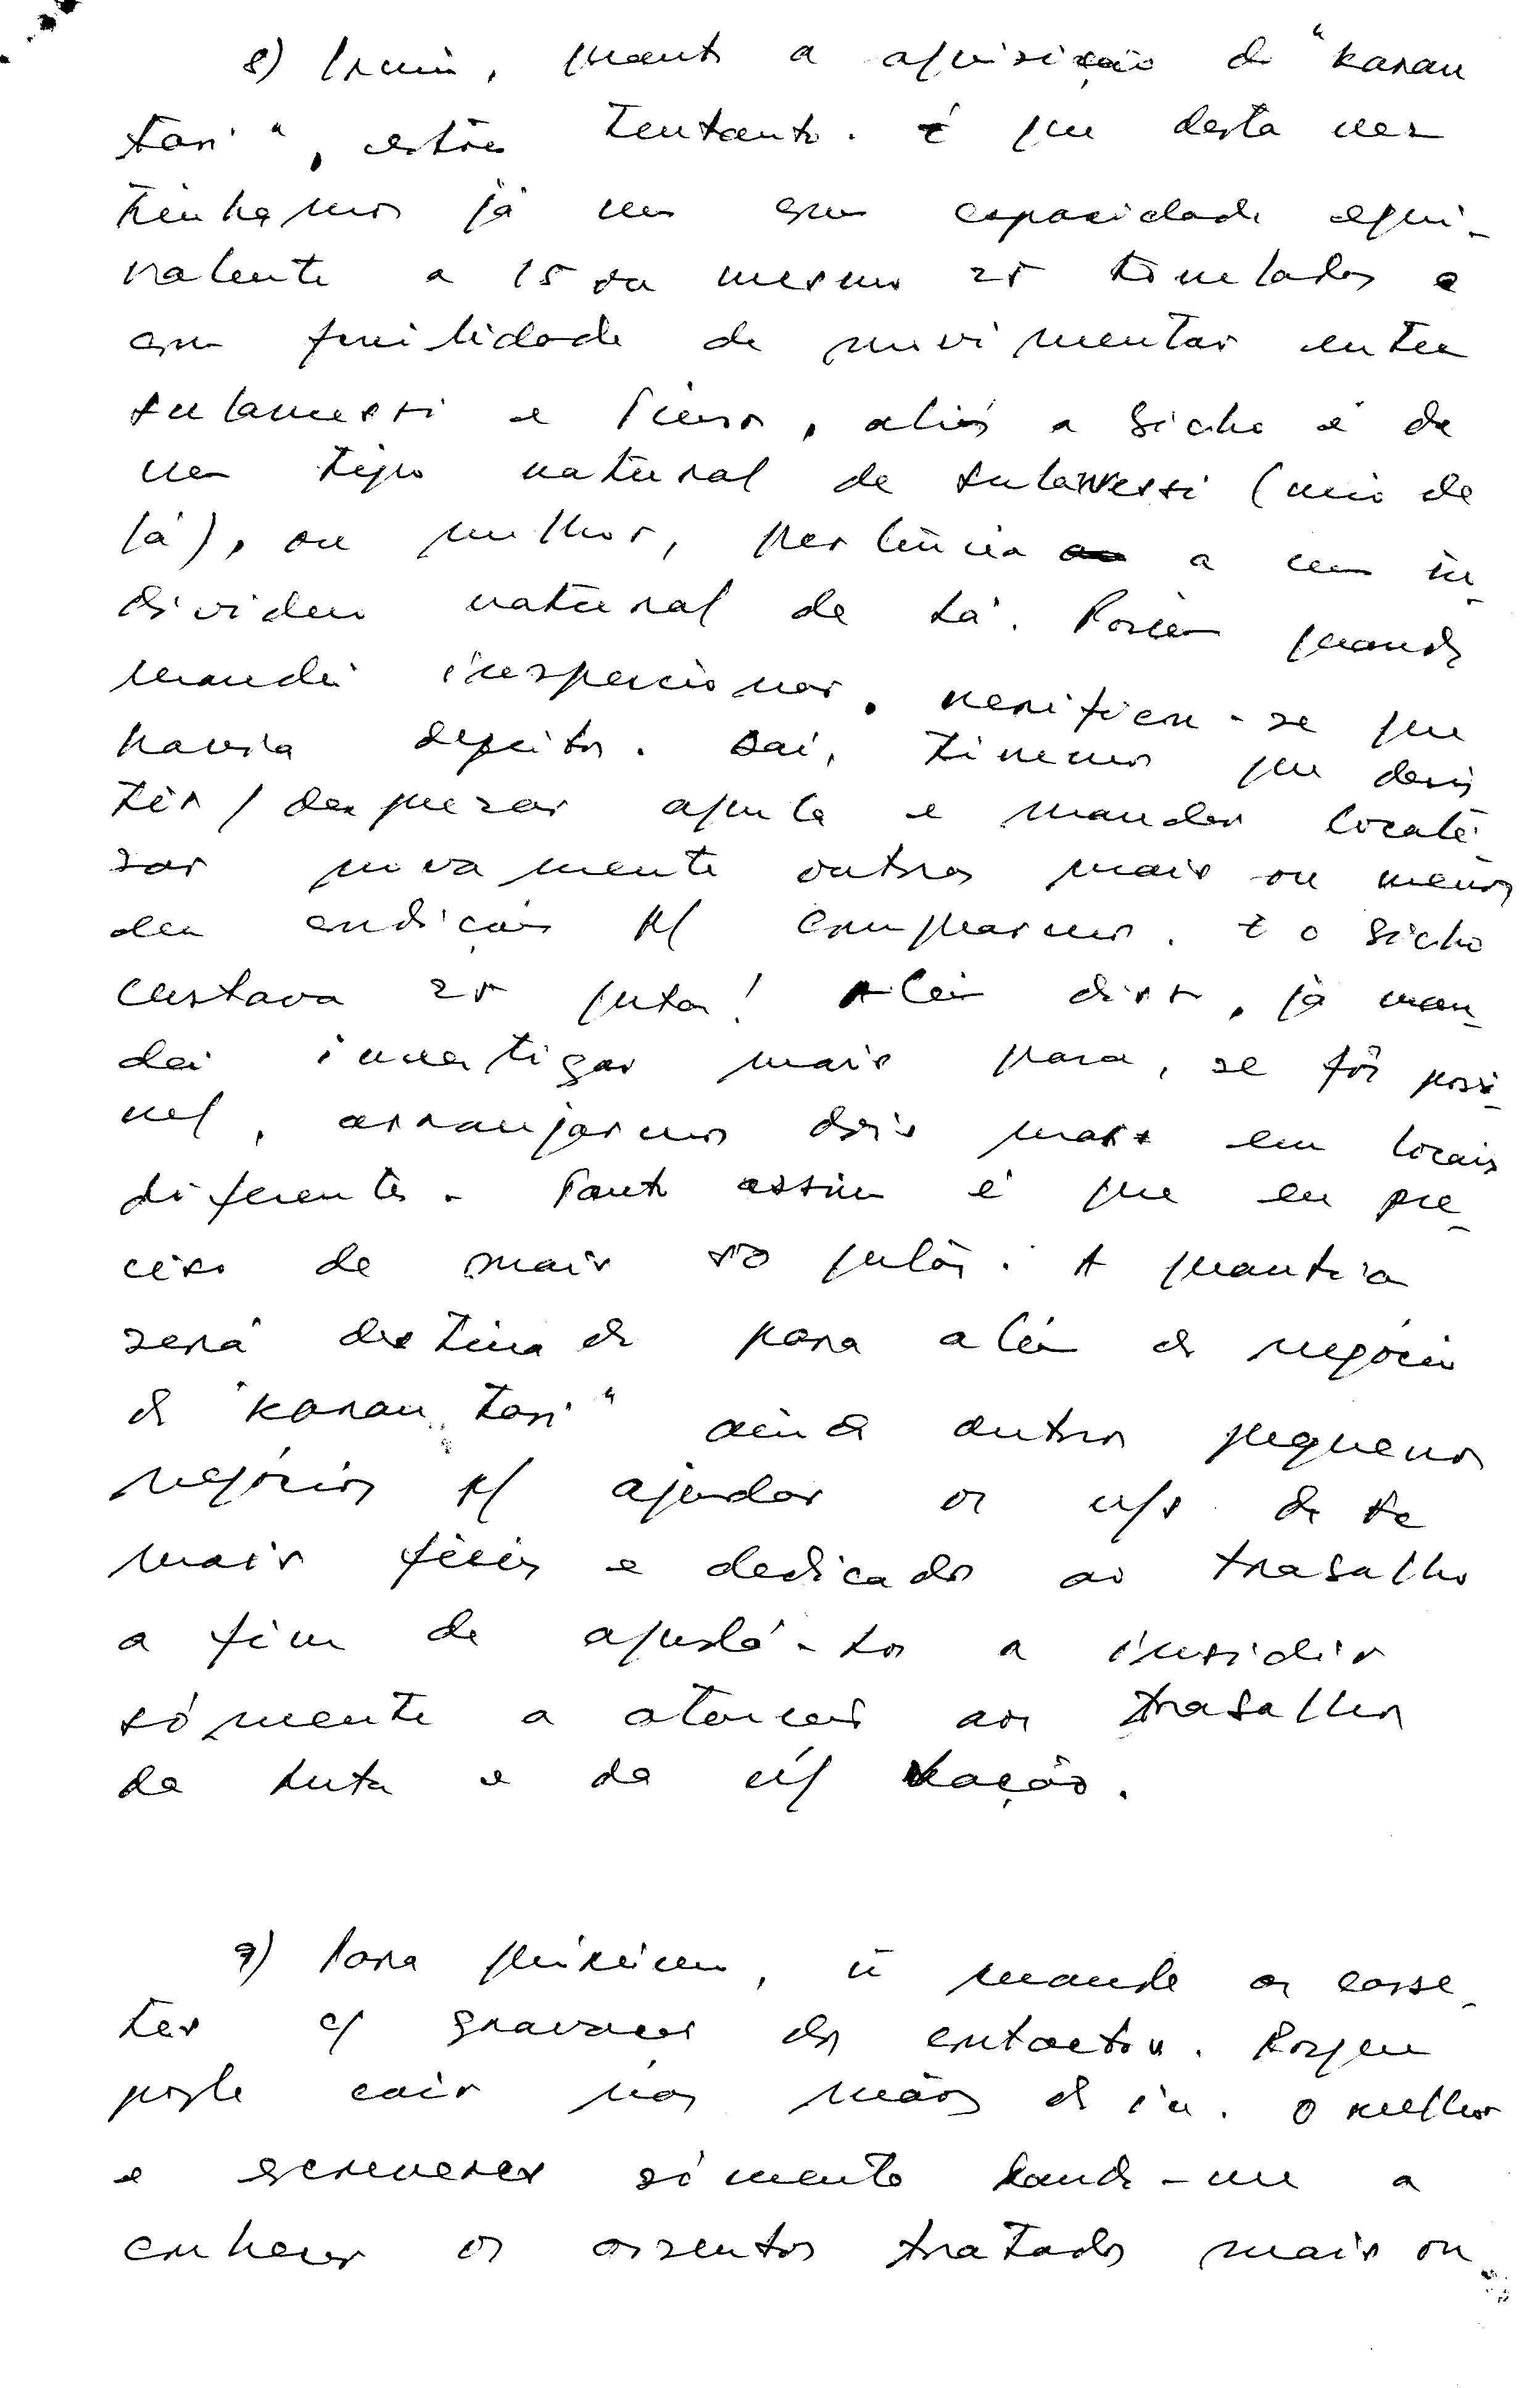 8) Irmão, quanto a aquisição do "karau
tasi", estou tentanto. É que desta vez
tinhamos já um com capacidade equi-
valente a 15 ou mesmo 25 toneladas e
com facilidade de movimentar entre
sulawessi e Timor, aliás o bicho é de
um tipo natural de sulawessi (veio de
lá), ou melhor, pertência a um in-
dividuo natural de lá. Porém quando
mandei inspencionar, verificou-se que
havia defeitos. Daí, tivemos que desis
tir / desprezar aquele e mandar locali-
zar novamente outros mais ou menos
em condições p/ comprarmos. E o bicho
custava 25 jutas! Além disso, já man-
dei investigar mais para, se fôr possi-
vel, arranjarmos dois mais em locais
diferentes. Tanto assim é que eu pre-
ciso de mais 50 jutas. A quantia
será destinado para além do negócio
do "karau tasi" ainda outros pequenos
negócios p/ ajudar os n/s de
mais fiéis e dedicados ao trabalho
a fim de ajudá-los a insidir
sómente a atenção aos trabalhos
da luta e da n/ Nação.
9) Para próximo, ñ mande as casse-
tes c/ gravações dos contactos. Porque
pode cair nas mãos do in. O melhor
é escreveres sómente dando-me a
conhecer os assuntos tratados mais ou